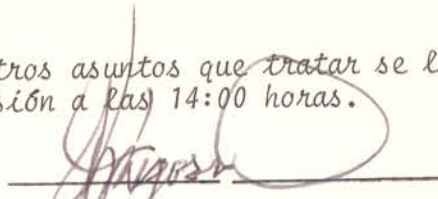 tros asuntos que tratar se l
sión a las 14:00 horas.